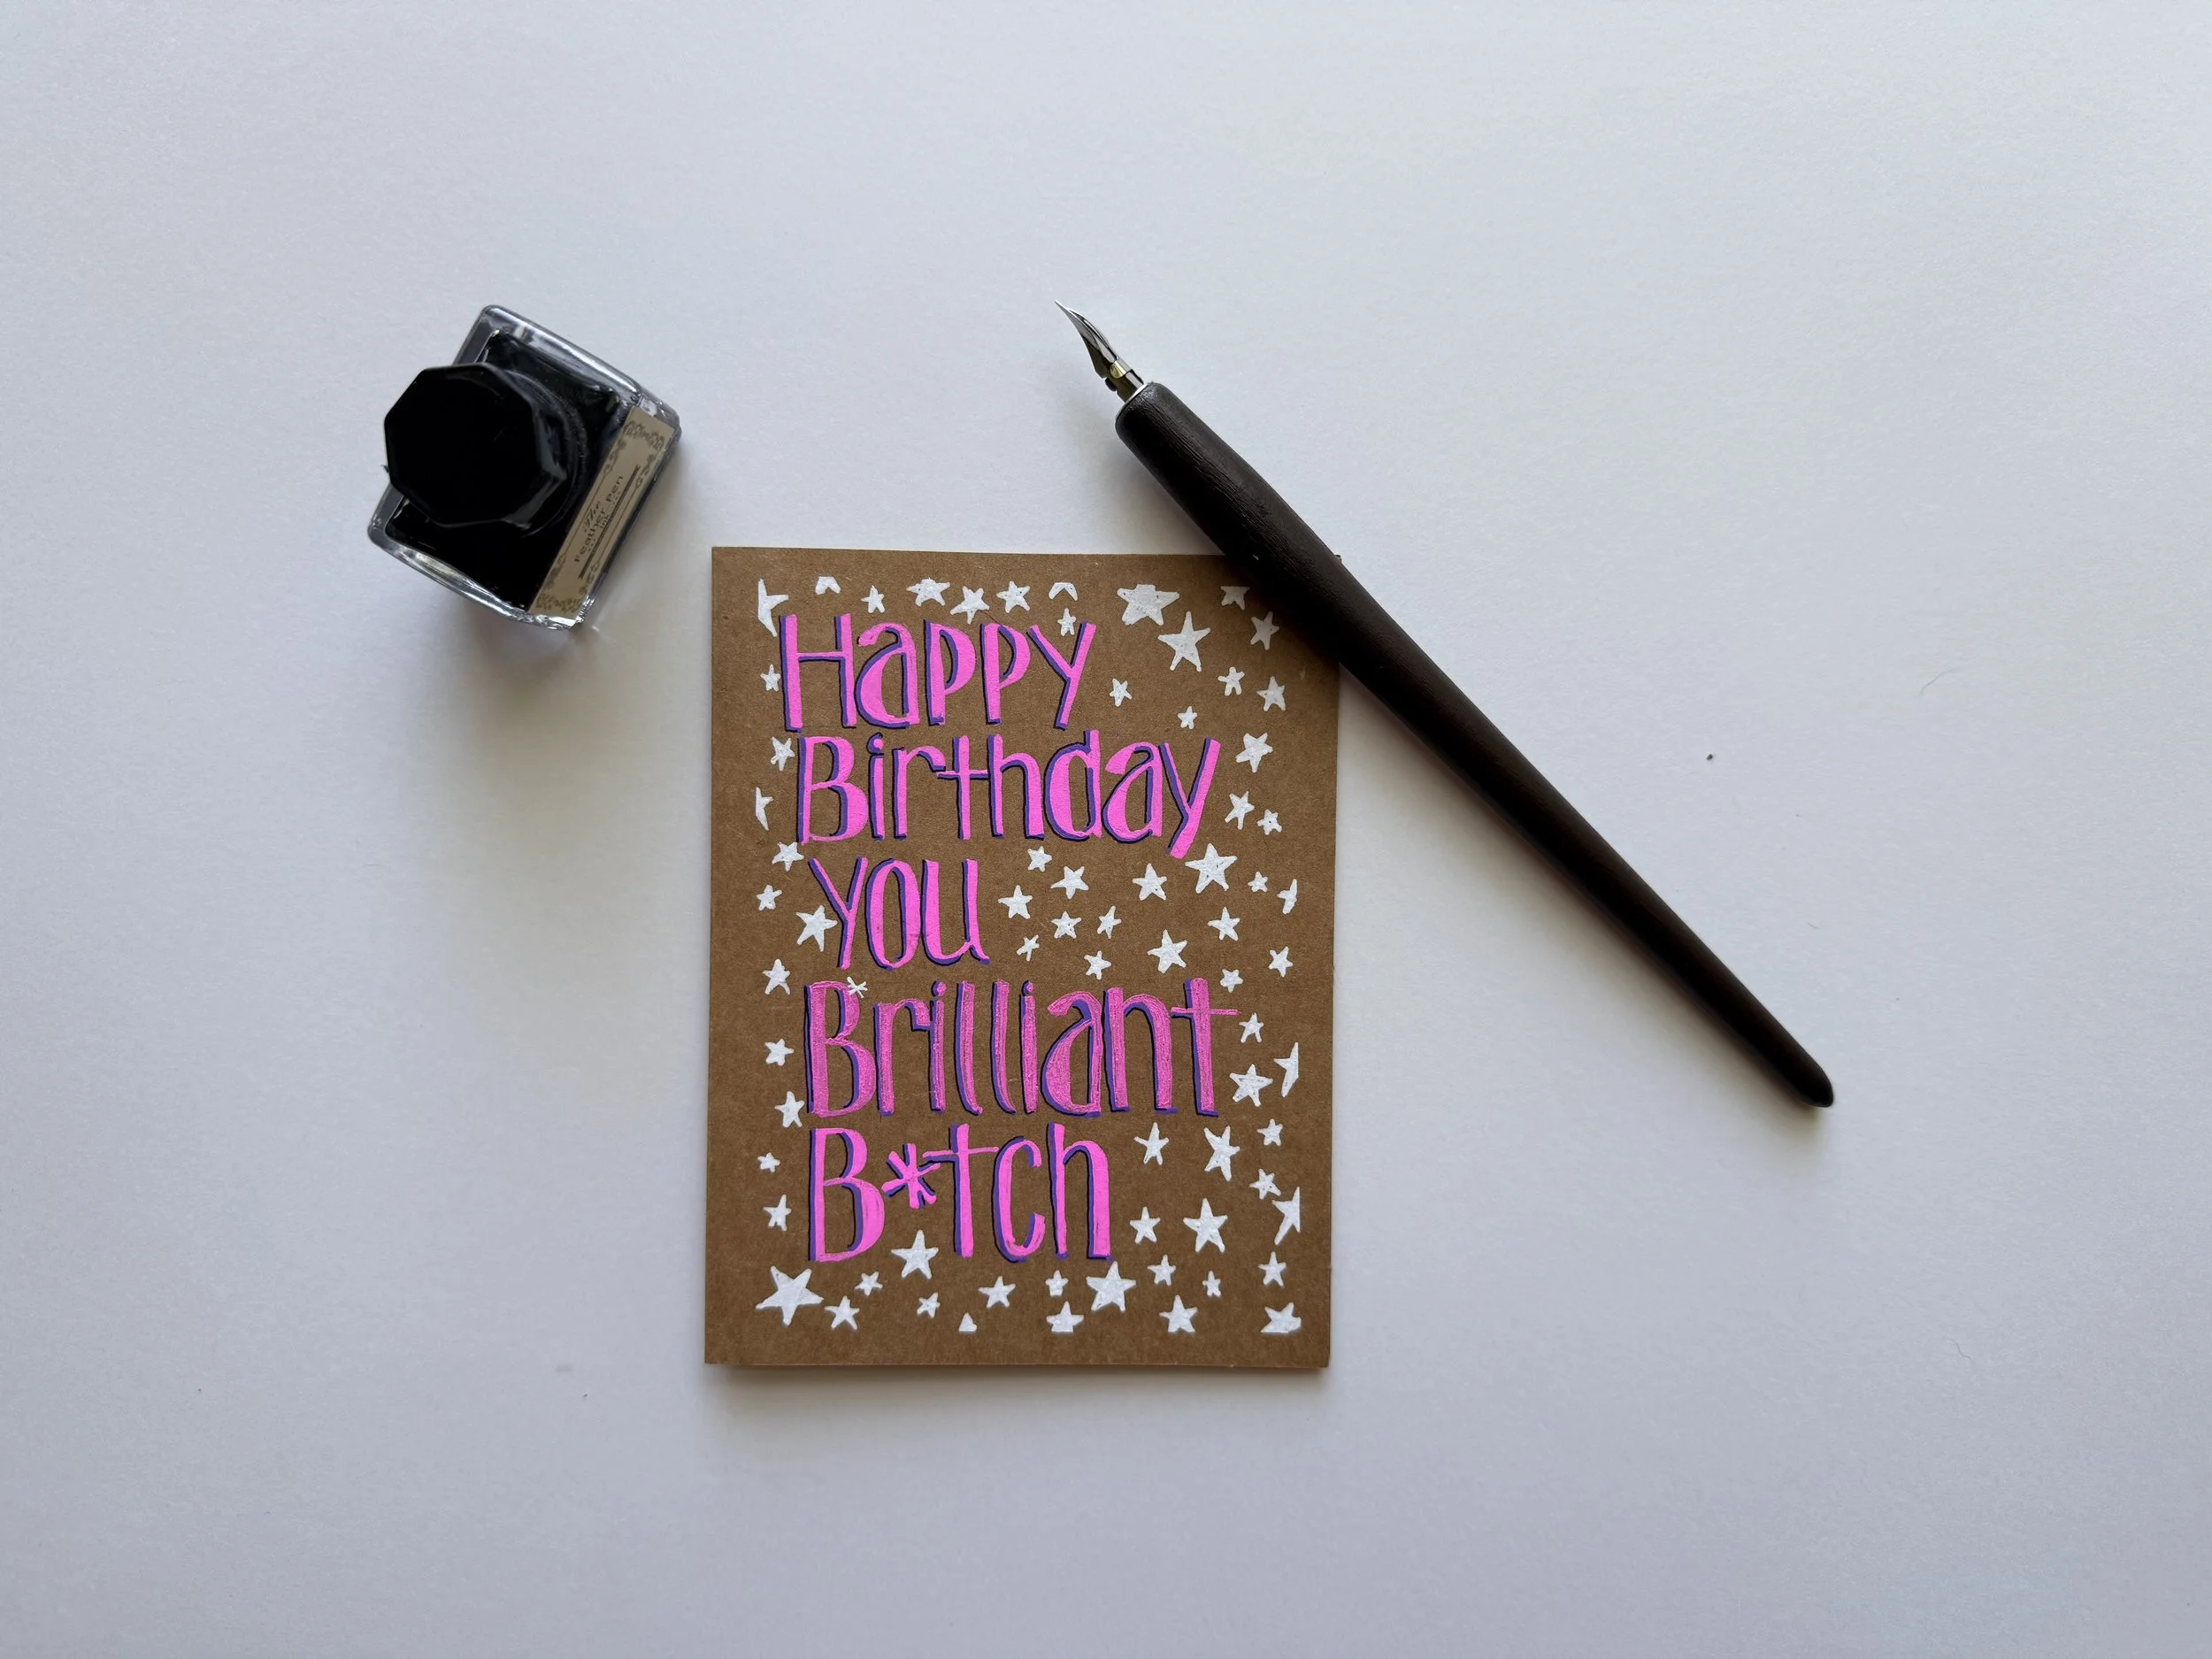 The
Feather Pen
Ink
Happy
Birthday
you
Brilliant
B*tch